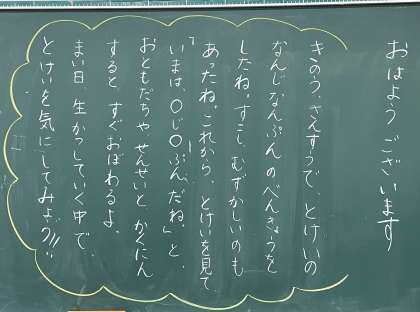 おはようございます
きのう、さんすうで、とけいの
なんじなんぷんのべんきょうを
したね。すこし、むずかしいのも
あったね。これから、とけいを見て
「いまは、〇じ〇ぷんだね。」と、
おともだちやせんせいと、かくにん
すると、すぐおぼわるよ。
まい日、生かつしていく中で、
とけいを気にしてみよう!!